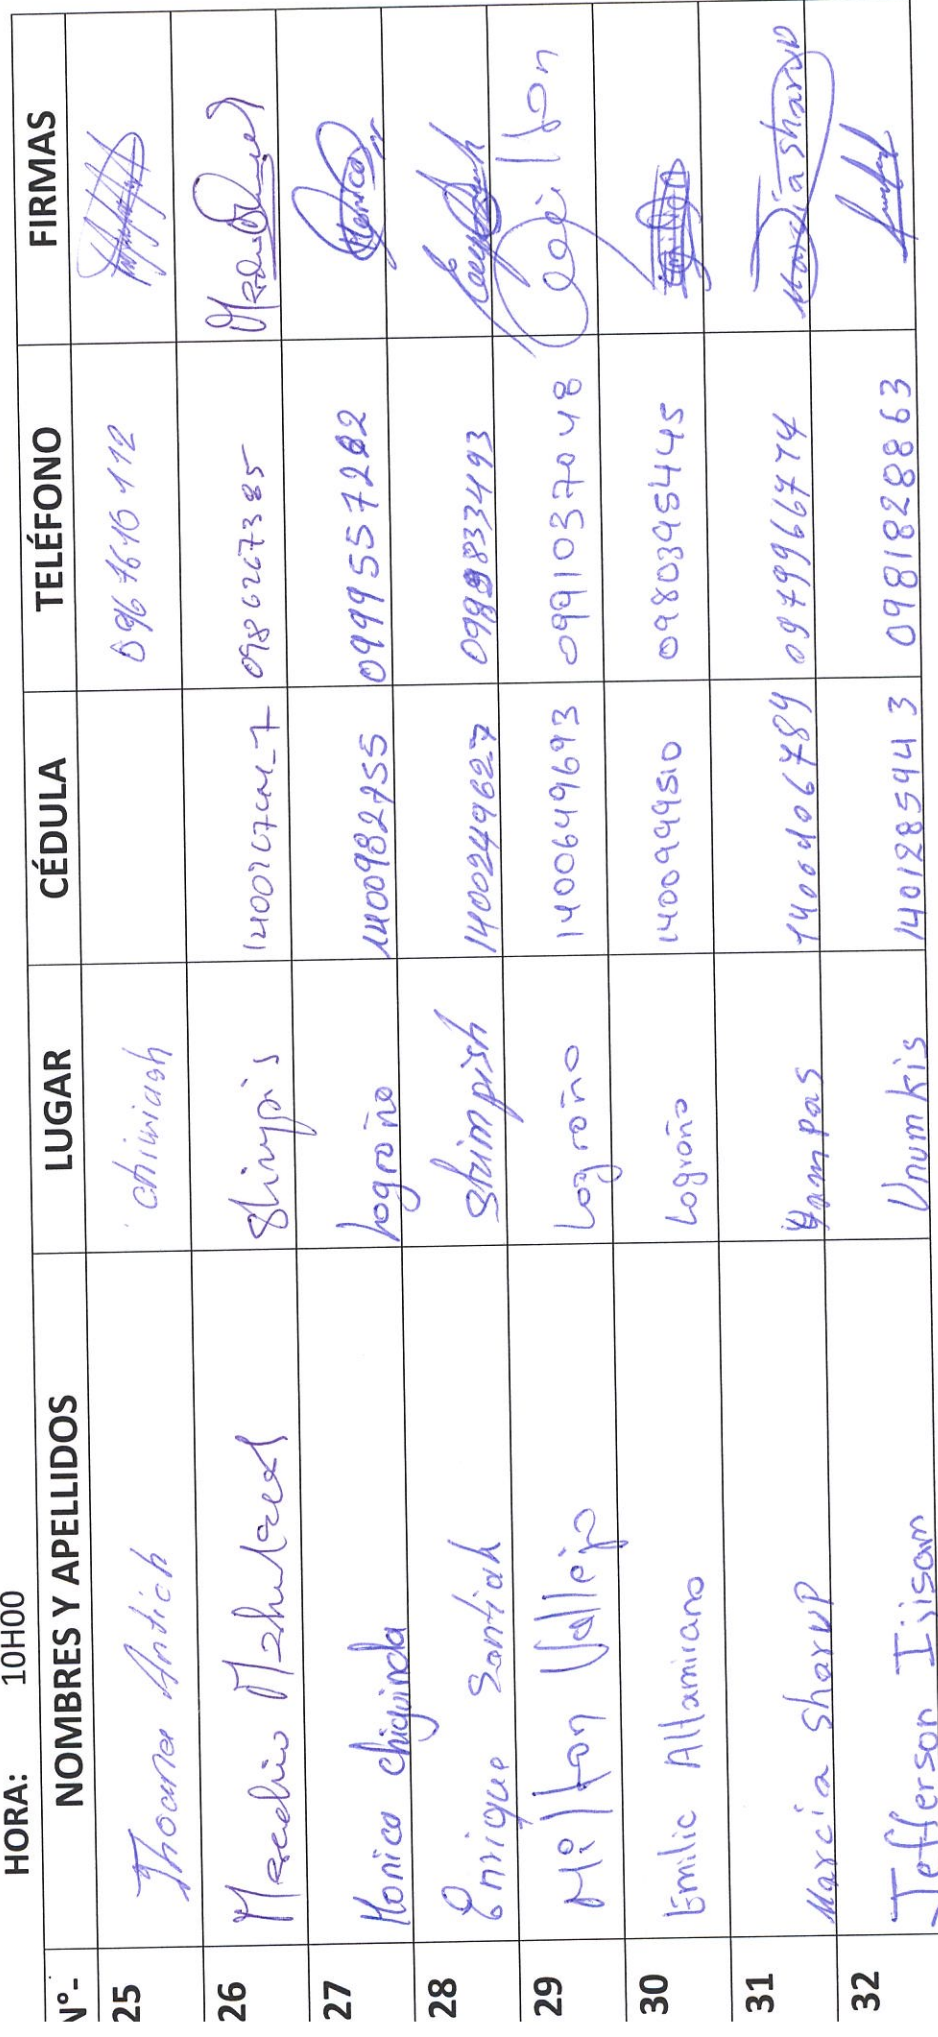 HORA: 10H00
N°.- NOMBRES Y APELLIDOS LUGAR CÉDULA TELÉFONO FIRMAS
25 Jhoana Antich chiwiash 0967616112
26 Shimpis 0986267385
27 Monica chiquinda Logroño 1400982755 0999557282
28 Enrique Santiak Shimpish 1400249627 0989833493
29 Milton Vallejo Logroño 1400649693 0991037048 Milton
30 Emilic Altamirano Logroño 1400999510 0980395445
31 Marcia Sharup Yampas 1400406789 0979966774 Marcia Sharup
32 Jefferson Ijisam Unumkis 1401285943 0981828863